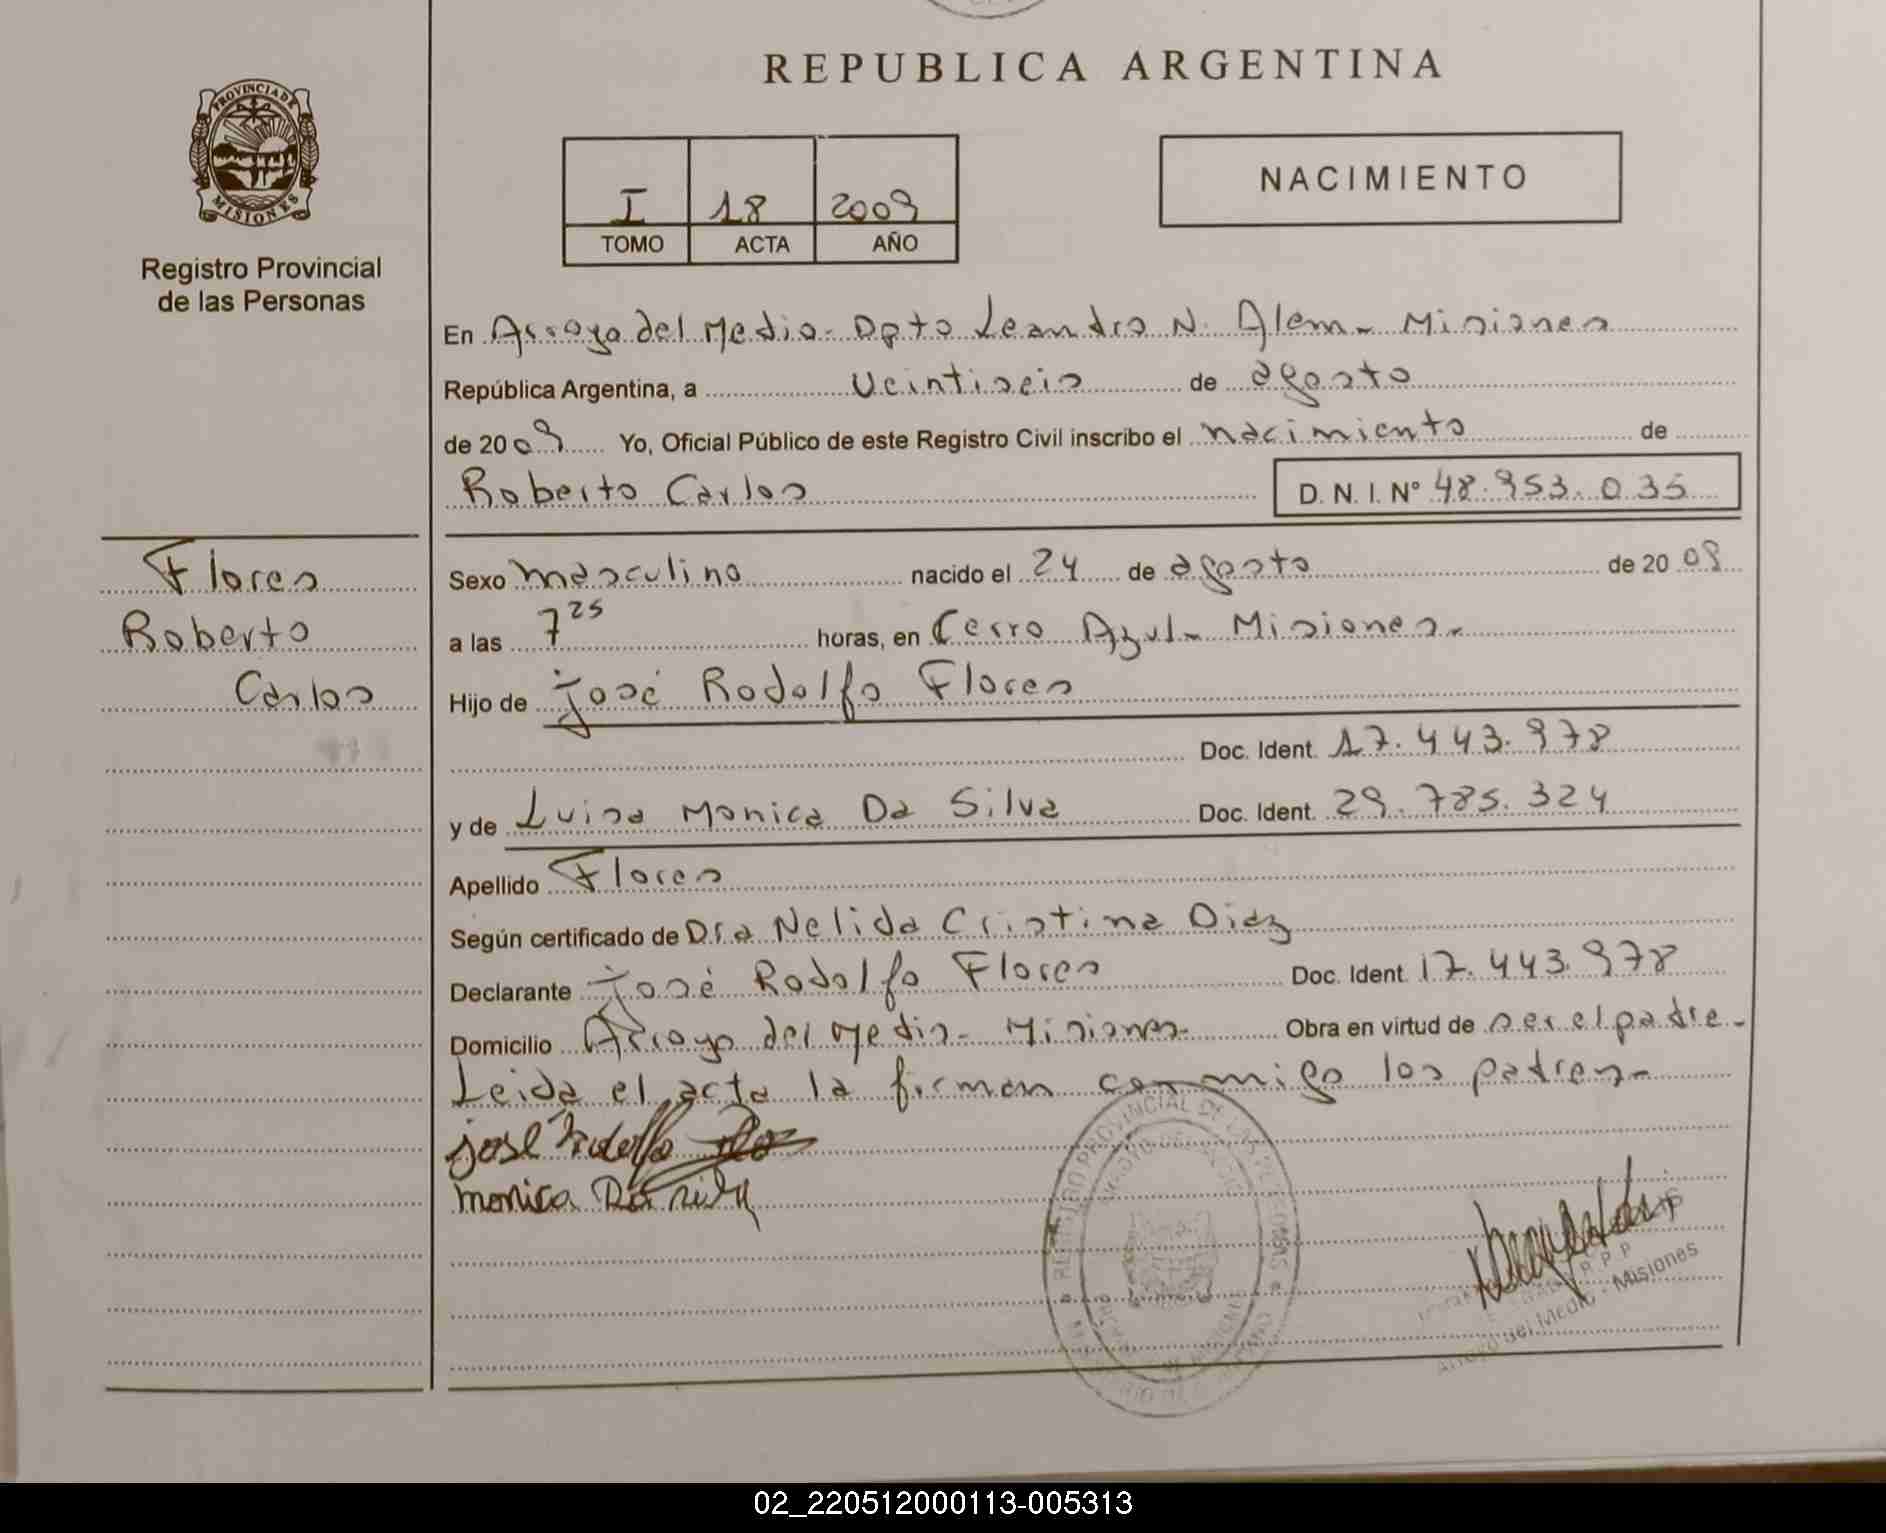 REPUBLICA ARGENTINA
PROVINCIA DE
MISIONES
Registro Provincial
de las Personas
I 18 2009
TOMO ACTA AÑO
NACIMIENTO
En Arroyo del Medio - Dpto Leandro N. Alem - Misiones
República Argentina, a veintiseis de agosto
de 2009 Yo, Oficial Público de este Registro Civil inscribo el nacimiento de
Roberto Carlos D. N. I. N° 48.953.035
Flores
Roberto
Carlos
Sexo masculino nacido el 24 de agosto de 20 09
a las 7 25 horas, en Cerro Azul - Misiones -
Hijo de José Rodolfo Flores
Doc. Ident. 17.443.978
y de Luisa Monica Da Silva Doc. Ident. 29.785.324
Apellido Flores
Según certificado de Dra Nelida Cristina Diaz
Declarante José Rodolfo Flores Doc. Ident. 17.443.978
Domicilio Arroyo del Medio - Misiones - Obra en virtud de ser el padre -
Leida el acta la firman conmigo los padres -
jose Rodolfo
monica Da silva
REGISTRO PROVINCIAL DE LAS PERSONAS
Arroyo del Medio - Misiones
02_220512000113-005313